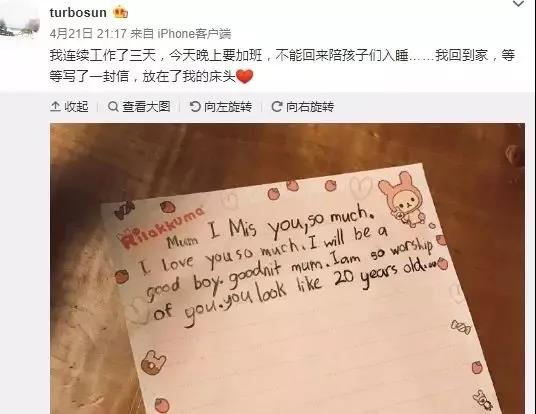 turbosun
4月21日 21:17 来自 iPhone客户端
我连续工作了三天，今天晚上要加班，不能回来陪孩子们入睡……我回到家，等
等写了一封信，放在了我的床头❤
收起 查看大图 向左旋转 向右旋转
Rilakkuma
Mum I Mis you,so much.
I love you so much.I will be a
good boy.goodnit mum.Iam so worship
of you.you look like 20 years old...